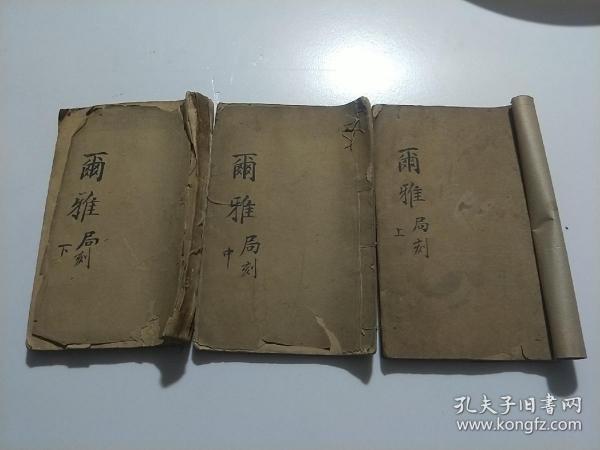 爾雅 局刻 上
爾雅 局刻 中
爾雅 局刻 下
孔夫子旧书网
www.kongfz.com